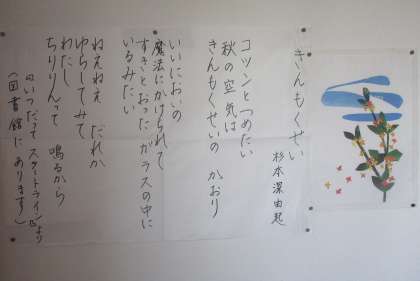 きんもくせい
杉本深由起
コツンとつめたい
秋の空気は
きんもくせいの かおり
いいにおいの
魔法にかけられて
すきとおった ガラスの中に
いるみたい
ねえねえ だれか
ゆらしてみて
わたし
ちりりんって 鳴るから
『いつだって スタートライン』より
(図書館に あります)